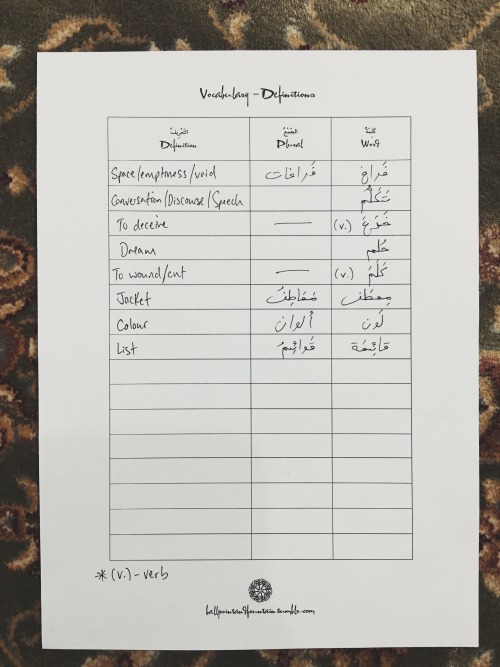 Vocabulary - Definitions
التَّعْرِيفُ الجَمْعُ كَلِمَةٌ
Definition Plural Word
Space/emptiness/void فَراغات فَراغ
Conversation/Discourse/Speech تَكَلُّم
To deceive — (v.) خَدَعَ
Dream حُلم
To wound/cut — (v.) كَلَمَ
Jacket مَعَاطِف مِعطَف
Colour ألوان لَون
List قَوائِم قائِمَة
* (v.) - verb
ballpointandfountain.tumblr.com